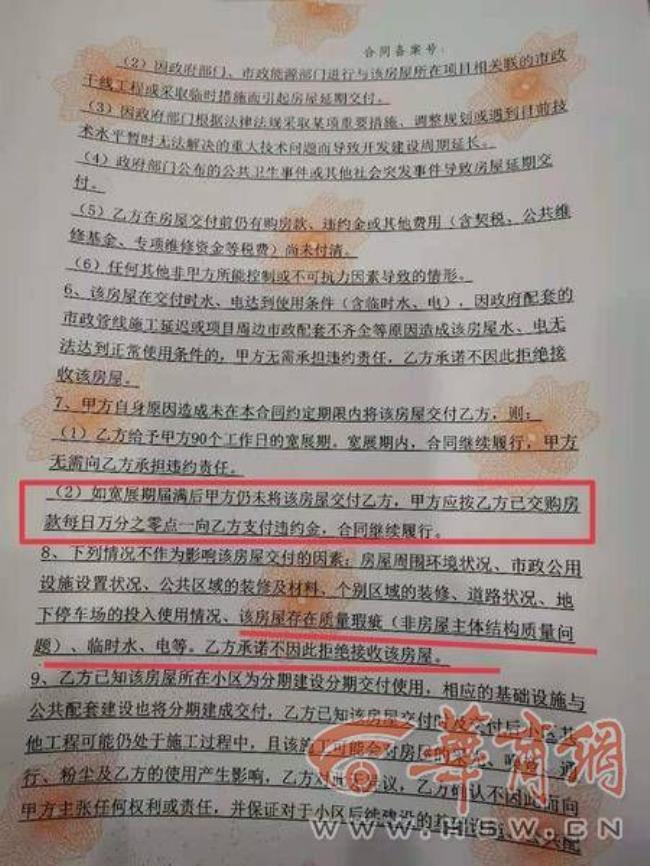 合同备案号:
(2)因政府部门、市政能源部门进行与该房屋所在项目相关联的市政
干线工程或采取临时措施而引起房屋延期交付。
(3)因政府部门根据法律法规采取某项重要措施、调整规划或遇到目前技
术水平暂时无法解决的重大技术问题而导致开发建设周期延长。
(4)政府部门公布的公共卫生事件或其他社会突发事件导致房屋延期交
付。
(5)乙方在房屋交付前仍有购房款、违约金或其他费用(含契税、公共维
修基金、专项维修资金等税费)尚未付清。
(6)任何其他非甲方所能控制或不可抗力因素导致的情形。
6、该房屋在交付时水、电达到使用条件(含临时水、电),因政府配套的
市政管线施工延迟或项目周边市政配套不齐全等原因造成该房屋水、电无
法达到正常使用条件的,甲方无需承担违约责任,乙方承诺不因此拒绝接
收该房屋。
7、甲方自身原因造成未在本合同约定期限内将该房屋交付乙方,则:
(1)乙方给予甲方90个工作日的宽展期。宽展期内,合同继续履行,甲方
无需向乙方承担违约责任。
(2)如宽展期届满后甲方仍未将该房屋交付乙方,甲方应按乙方已交购房
款每日万分之零点一向乙方支付违约金,合同继续履行。
8、下列情况不作为影响该房屋交付的因素:房屋周围环境状况、市政公用
设施设置状况、公共区域的装修及材料、个别区域的装修、道路状况、地
下停车场的投入使用情况、该房屋存在质量瑕疵(非房屋主体结构质量问
题)、临时水、电等。乙方承诺不因此拒绝接收该房屋。
9、乙方已知该房屋所在小区为分期建设分期交付使用,相应的基础设施与
公共配套建设也将分期建成交付,乙方已知该房屋交付时及交付后小区其
他工程可能仍处于施工过程中,且该施工可能会对房屋的采、噪音、通
行、粉尘及乙方的使用产生影响,乙方对此无异议,乙方确认不因此而向
甲方主张任何权利或责任,并保证对于小区后续建设的基础设施、公共配
華商網
WWW.HSW.CN